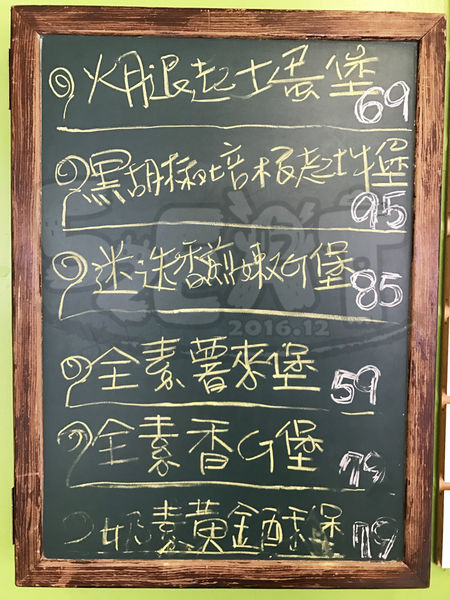 火腿起士蛋堡 69
黑胡椒培根起士牛堡 95
迷迭香煎嫩G堡 85
2016.12
全素薯來堡 59
全素香G堡 79
奶素黃金酥堡 79